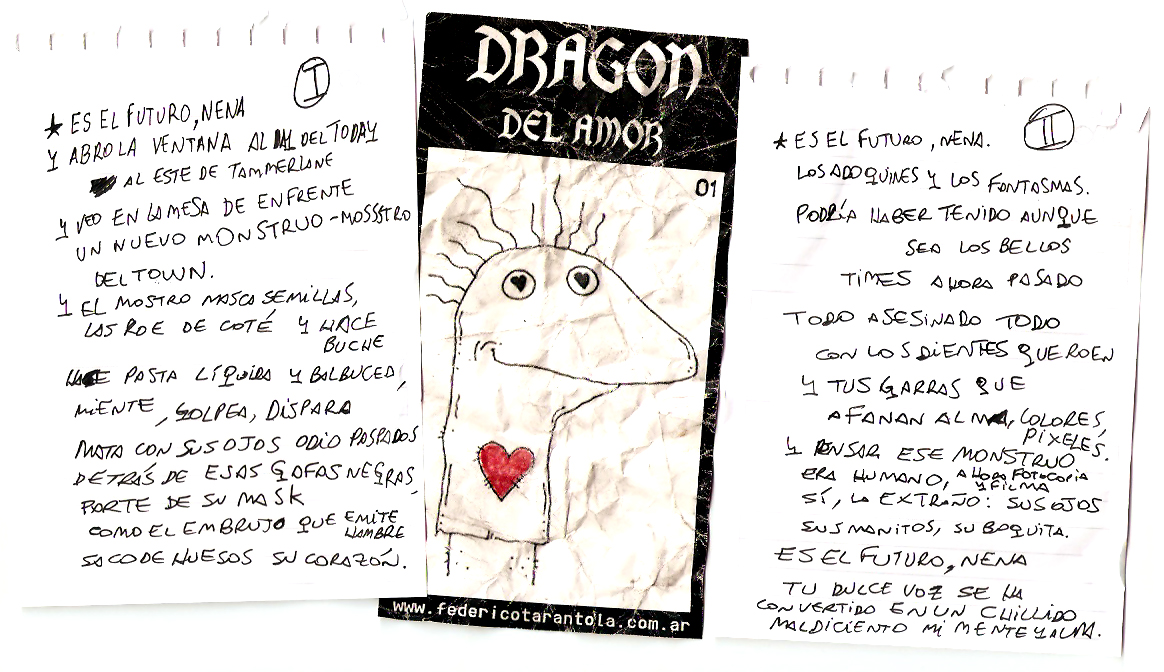 I
★ ES EL FUTURO, NENA
Y ABRO LA VENTANA AL DEL TODAY
AL ESTE DE TAMMERLANE
Y VEO EN LA MESA DE ENFRENTE
UN NUEVO MONSTRUO-MOSSSTRO
DEL TOWN.
Y EL MOSTRO MASCA SEMILLAS,
LAS ROE DE COTÉ Y HACE
BUCHE
HACE PASTA LÍQUIDA Y BALBUCEA,
MIENTE, GOLPEA, DISPARA
MATA CON SUS OJOS ODIO PASPADOS
DETRÁS DE ESAS GAFAS NEGRAS,
PARTE DE SU MASK
COMO EL EMBRUJO QUE EMITE
HAMBRE
SACODE HUESOS SU CORAZÓN.
DRAGON
DEL AMOR
01
www.federicotarantola.com.ar
II
★ ES EL FUTURO, NENA.
LOS ADOQUINES Y LOS FANTASMAS.
PODRÍA HABER TENIDO AUNQUE
SEA LOS BELLOS
TIMES AHORA PASADO
TODO ASESINADO TODO
CON LOS DIENTES QUE ROEN
Y TUS GARRAS QUE
AFANAN ALMA, COLORES,
PIXELES.
Y PENSAR ESE MONSTRUO
ERA HUMANO, AHORA FOTOCOPIA
Y FILMA
SÍ, LA EXTRAÑO: SUS OJOS
SUS MANITOS, SU BOQUITA.
ES EL FUTURO, NENA
TU DULCE VOZ SE HA
CONVERTIDO EN UN CHILLIDO
MALDICIENTO MI MENTE Y ALMA.